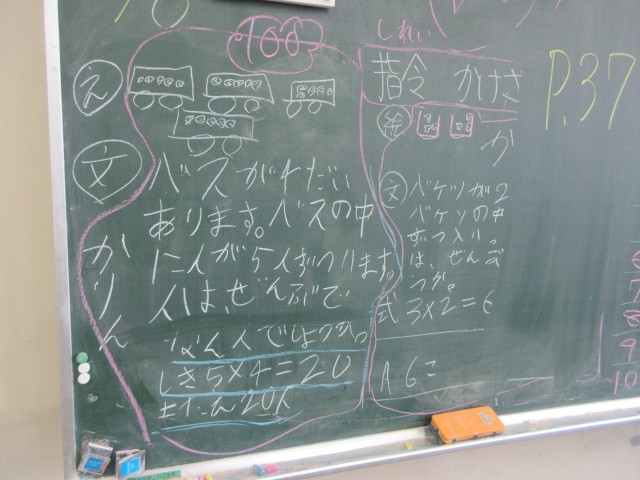 100
え
文
バスが4だい
あります。バスの中
に人が5人ずつ います。
人は、ぜんぶで
なん人でしょうか。
しき5×4=20
こたえ20人
かりん
しれい
指令 かけざ
絵
か
文 バケツが2
バケツの中
ずつ入
は、ぜんぶ
つか。
式 3×2=6
A 6こ
P.37
6
7
8
9
10